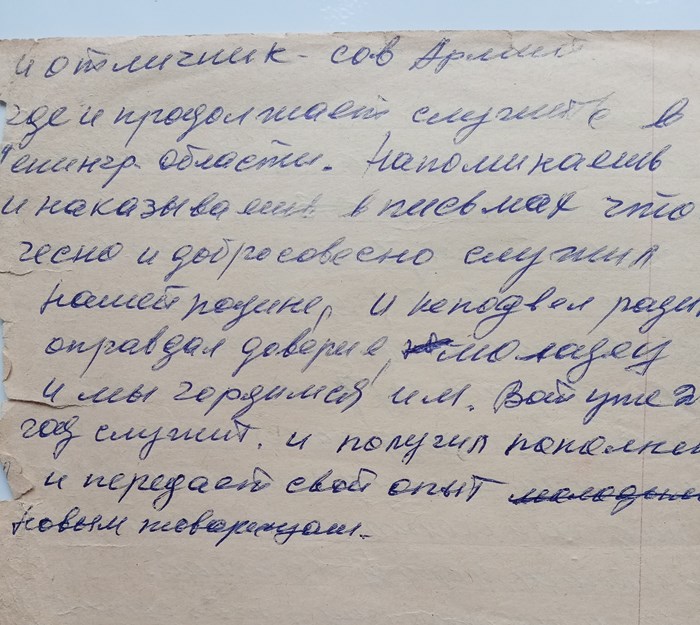 и отличник - сов Армии
где и продолжает служить в
Ленингр. области. Напоминаешь
и наказываешь в письмах что
чесно и добросовесно служил
нашей родине, и неподвел
оправдал доверие, молодец
и мы гордимся им. Вот уже 2
год служит. и получил
и передает свой опыт
новым товарищам.